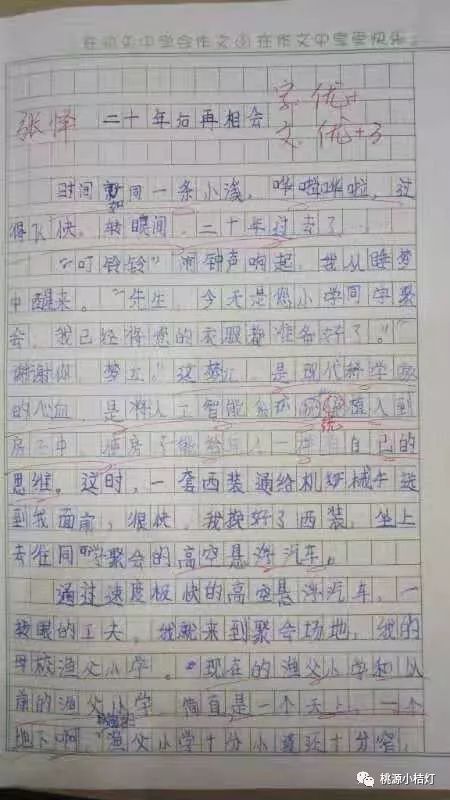 在 中学会作文 在作文中享受快乐
张怿 二十年后再相会 字:优+
文:优+3
时间如同一条小浅,哗啦哗啦,过
得飞快,转眼间,二十年过去了……
“叮铃铃”闹钟声响起,我从睡梦
中醒来。“先生,今天是您小学同学聚
会,我已经将您的衣服都准备好了。”“
谢谢你,梦江。”这梦江,是现代科学家
的心血,是将人工智能 系统 植入到
房子中,使房子能 人一样 自己的
思维。这时,一套西装通给机 械手送
到我面前,很快,我换好了西装,坐上
去往同学聚会的高空悬浮汽车。
通过速度极快的高空悬浮汽车,一
转眼的工夫,我就来到聚会场地,我的
母校渔父小学。现在的渔父小学和以
前的渔父小学 简直是一个天上,一个
地下啊, 渔父小学十分小 还十分窄,
桃源小桔灯